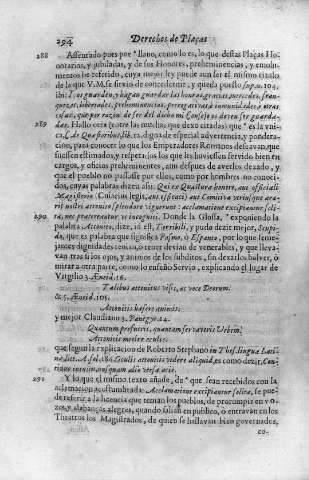 294 Derechos de Plaças
288 Assentado pues por llano, como lo es, lo que destas Plaças Ho-
norarias, y jubiladas, y de sus Honores, preheminencias, y emolu-
mentos he referido, cuya mejor ley puede aun ser el mismo titulo
de los que V.M. se sirvio de concederme, y queda puesto sup. n. 104.
ibi: os guarden, y hagan guardar las honras, gracias, mercedes, fran-
queças, libertades, preheminencias, prerogativas, è inmunidades, è otras
cosas, que por razon de ser del dicho mi Consejo os deven ser guarda-
289 das. Hallo otra (entre las muchas que dexo citadas) que es la vni-
ca, C. de Quæstoribus, lib. 12. digna de especial advertencia, y pondera-
cion, para conocer lo que los Emperadores Romanos deseavan, que
fuessen estimados, y respetados los que les huviessen servido bien en
cargos, y oficios preheminentes, aun despues de averlos dexado, y
que el pueblo no passasse por ellos, como por hombres no conoci-
dos, cuyas palabras dizen assi. Qui ex Quæstura honore, aut officiali
Magisterio
nostri attonite splendore viguerunt: acclamatione excipiantur soli-
290 ta, nec prætereantur ut incogniti. Donde la Glossa, exponiendo la
palabra, Attonito, dize, id est, Terribili, y pudo dezir mejor, Stupi-
do, que es palabra que significa Pasmo, ò Espanto, por lo que seme-
jantes dignidades tenian, ò tener devian de venerables, y que lleva-
van tras si los ojos, y animos de los subditos, sin dexarlos bolver, ò
mirar a otra parte, como lo enseño Servio, explicando el lugar de
Virgilio 3. Æneid. 16.
Talibus attonitus visis, ac voce Deorum.
& 5. Æneid. 105.
Attonitis hæsere animis:
y mejor Claudiano 3. Panegyr. 24.
Quantum profueris, quantam servaveris Urbem,
Attonitis metire oculis:
que segun la explicacion de Roberto Stephano in Thes. linguæ Lati-
næ, lit. A. fol. 186. Oculis attonitis videre aliquid, es como dezir, Con-
tinue intuitu, nusquam alio versa acie.
291 Y lo que el mismo texto añade, de que sean recebidos con la
aclamacion acostumbrada: Acclamatione excipiantur solita, se pue-
de referir a la licencia que tenian los pueblos, de prorumpir en vo-
zes, y alabanças alegres, quando salian en publico, ò entravan en los
Theatros los Magistrados, de quien se hallavan bien governados,
co-